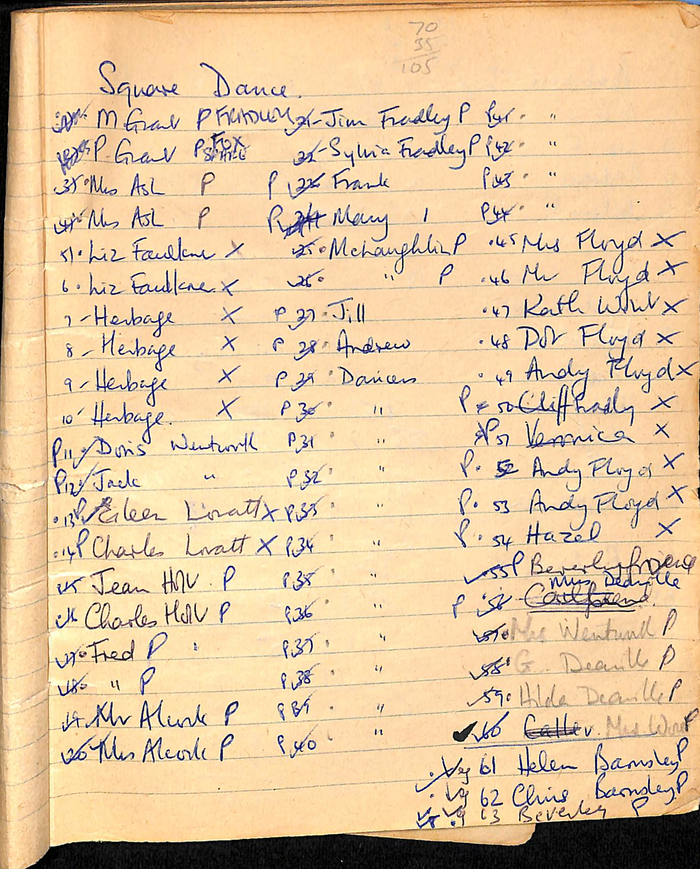 70
35
105
Square Dance.
M Grant P FRADLEY
P. Grant P FOX
3. Mrs Ash P
4. Mrs Ash P
5. Liz Faulkner X
6. Liz Faulkner X
7 - Herbage X
8 - Herbage X
9 - Herbage X
10 Herbage. X
P 11 Doris Wentworth
P 12 Jack "
13 P Eileen Lovatt X
14 P Charles Lovatt X
15 Jean Holl P
16 Charles Holl P
17 Fred P "
18 " P
19 Mr Alcock P
20 Mrs Alcock P
21 - Jim Fradley P
22 - Sylvia Fradley P
P 23 Frank
P 24 Mary 1
25 McLaughlin P
26 " P
P 27 Jill
P 28 Andrew
P 29 Dancers
P 30 "
P 31 "
P 32 "
P 33 "
P 34 "
P 35 "
P 36 "
P 37 "
P 38 "
P 39 "
P 40 "
P 41 "
P 42 "
P 43 "
P 44 "
45 Mrs Floyd X
46 Mr Floyd X
47 Kath X
48 Dot Floyd X
49 Andy Floyd X
P 50 Cliff X
P 51 Veronica X
P. 52 Andy Floyd X
P. 53 Andy Floyd X
P. 54 Hazel X
55 P Beverley friend
P 56 Mrs Deaville
57 Mrs Wentworth P
58 G. Deaville P
59. Hilda Deaville P
60 Caller. Mrs P
61 Helen Barnsley P
62 Chris Barnsley P
63 Beverley P